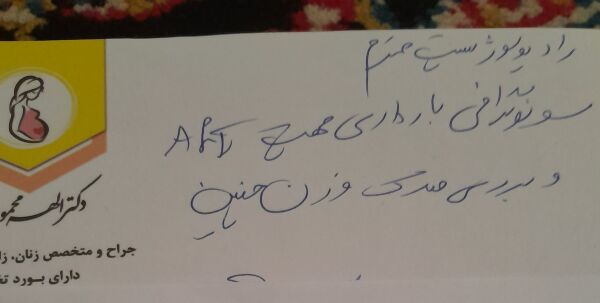 رادیولوژیست محترم
سونوگرافی بارداری جهت
و بررسی وزن جنین
دکتر الهه محمو
جراح و متخصص زنان، زا
دارای بورد تخ